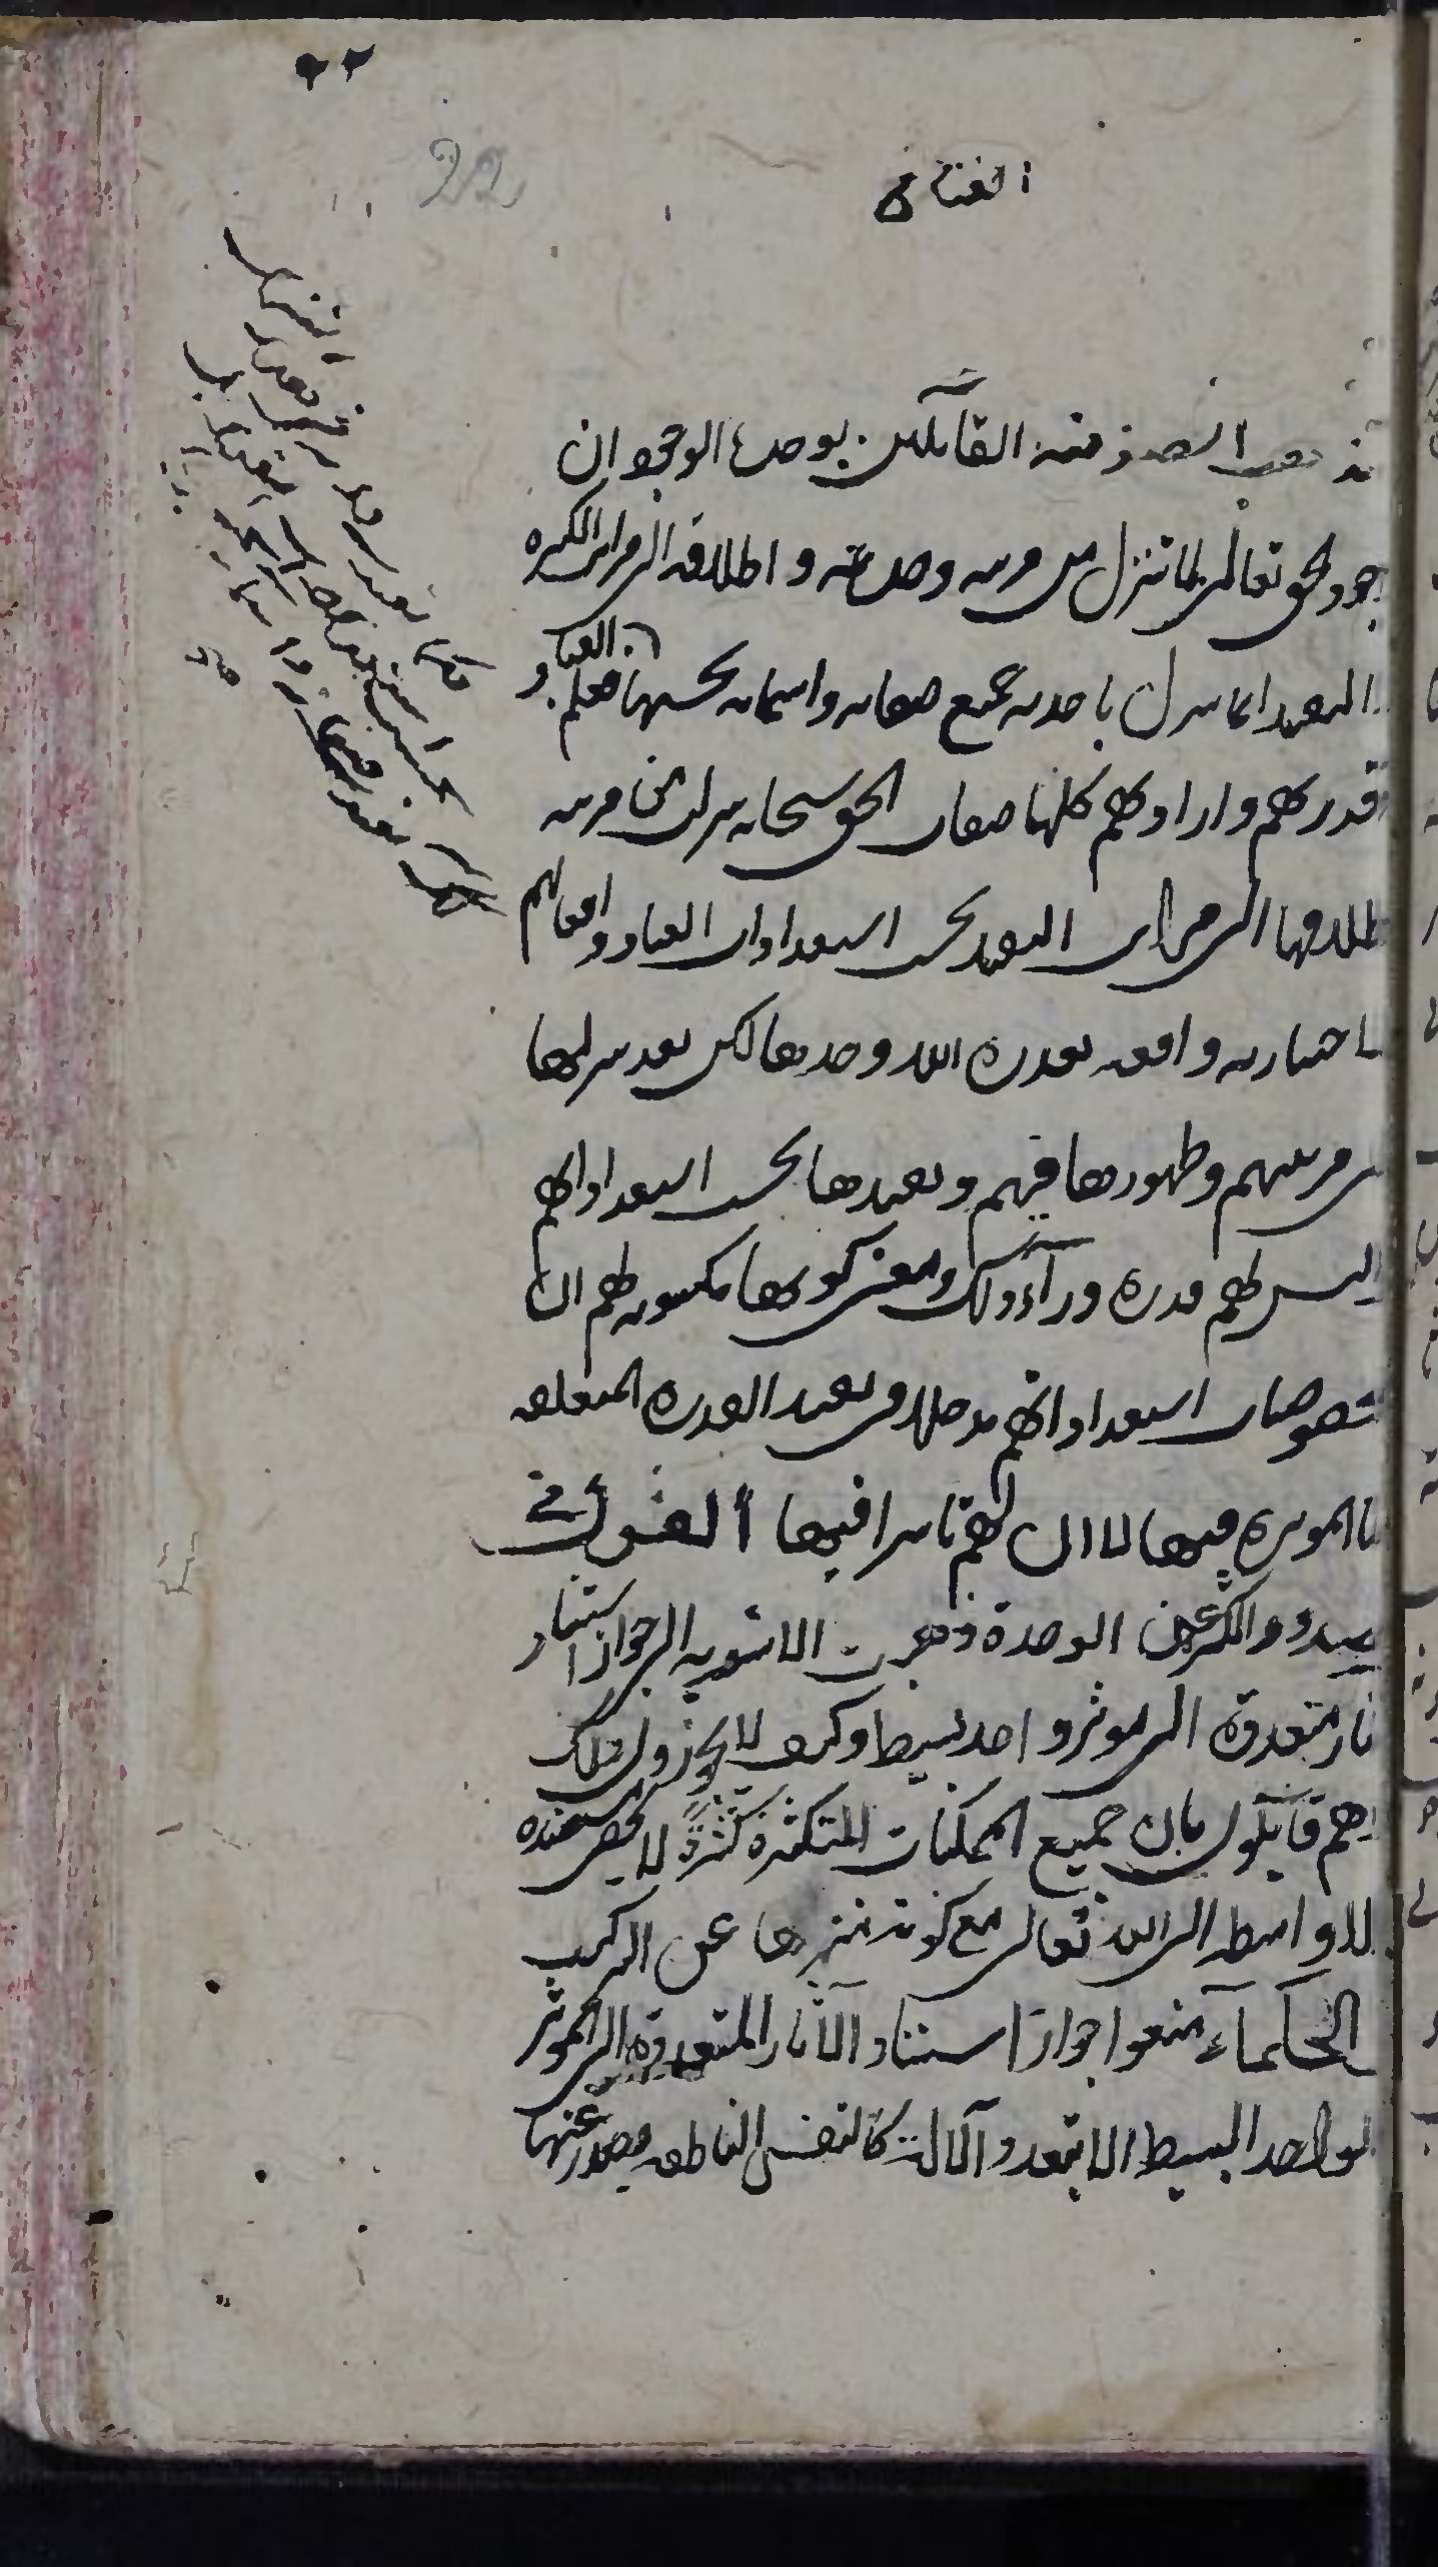 ٢٢
22
الفتاح
مذهب الصوفية القائلين بوحدة الوجود ان
جود الحق تعالى لما تنزل من مرتبة وحدته و اطلاقه الى مراتب الكثرة
و التقييد انما تنزل باحدية جميع صفاته و اسمائه بحسبها فعلم العباد و
قدرتهم و ارادتهم كلها صفات الحق سبحانه تنزلت من مرتبة
طلاقها الى مراتب التقييد بحسب استعدادات العباد و افعالهم
لاختيارية واقعة بقدرة الله وحدها لكن بعد تنزلها
لى مرتبتهم وظهورها فيهم وتقيدها بحسب استعداداتهم
ليس لهم قدرة وراء ذلك ومعنى كونها مكسوبة لهم ان
خصوصيات استعداداتهم مدخلا فى تقييد القدرة المتعلقة
بها المؤثرة فيها لا ان لهم تاثيرا فيها القول فى
صدور الكثرة عن الوحدة ذهبت الاشعرية الى جواز استناد
آثار متعددة الى مؤثر واحد بسيط وكيف لا يجوزون ذلك
وهم قائلون بان جميع الممكنات المتكثرة كثرة لا تحصى مستندة
بلا واسطة الى الله تعالى مع كونه منزها عن التركيب
الحكماء منعوا جواز استناد الآثار المتعددة الى المؤثر
لواحد البسيط الا بتعدد آلاته كالنفس الناطقة يصدر عنها